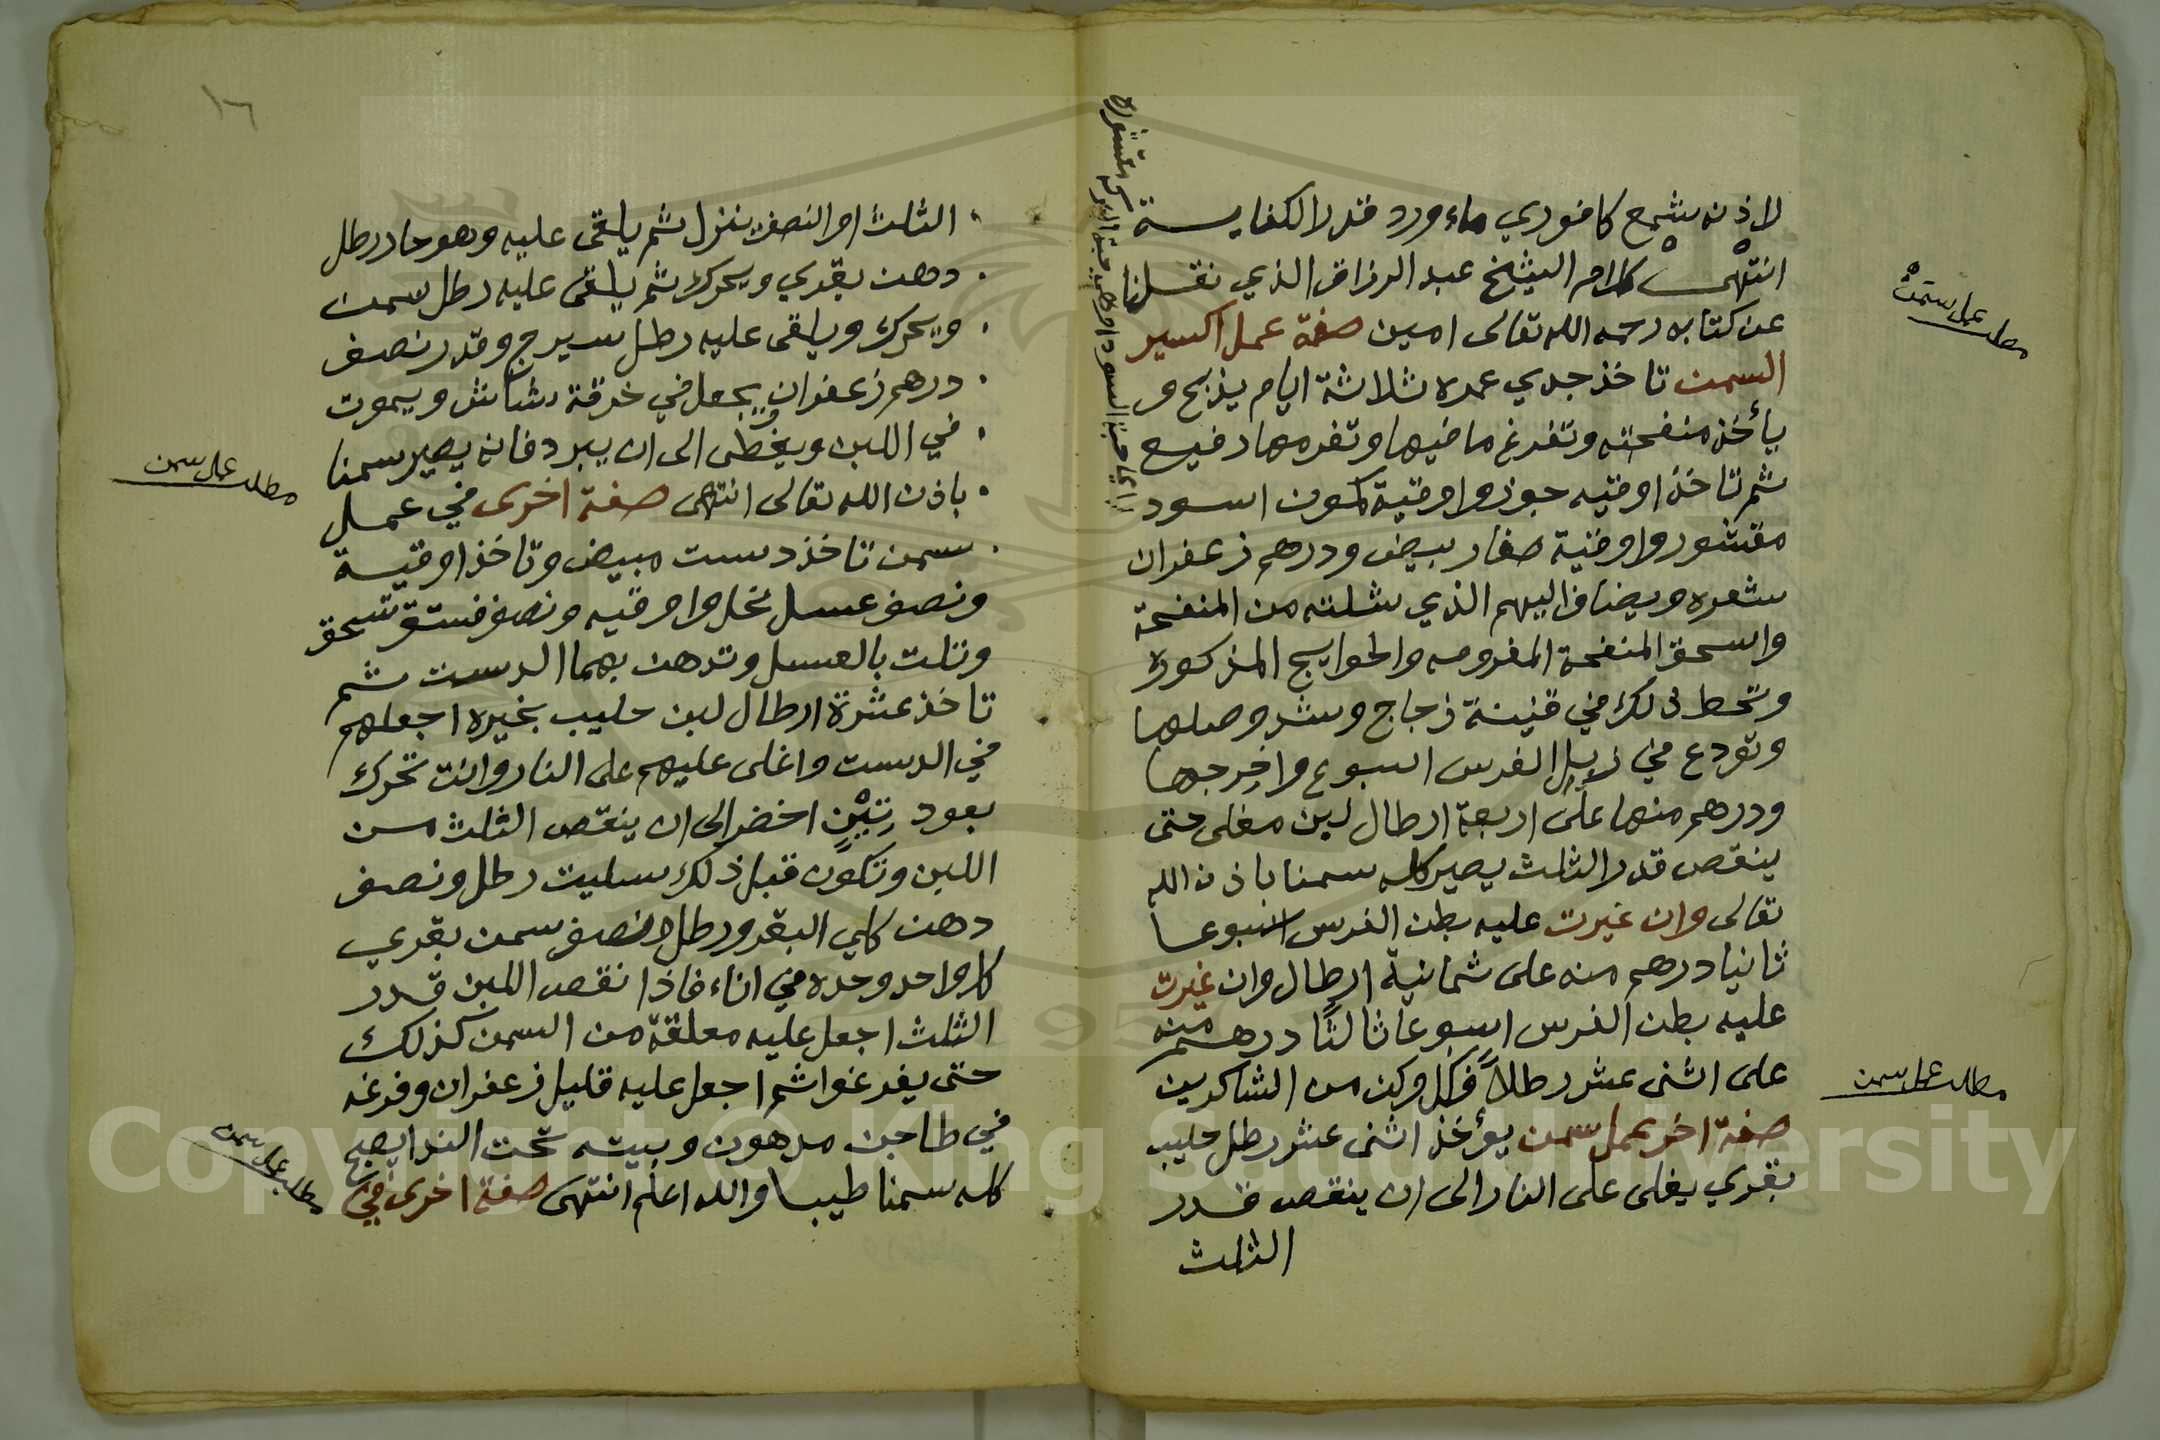 لاذنه شمع كافوري ماء ورد قدر الكفايسة
انتهى كلام الشيخ عبد الرزاق الذي نقلنا
عن كتابه رحمه الله تعالى امين صفة عمل اكسير
السمن تاخذ جدي عمره ثلاثة ايام يذبح و
يأخذ منفحته وتفرغ ما فيها وتفرمها رفيع
ثم تاخذ اوقيه جوز واوقية كمون اسود
مقشور واوقية صفار بيض ودرهم زعفران
شعره ويضاف اليهم الذي شلته من المنفحة
واسحق المنفحة المفرومه والحوايج المذكوره
وتحط ذلك في قنينة زجاج وشد وصلها
وتودع في زبل الفرس اسبوع واخرجها
ودرهم منها على اربعة ارطال لبن مغلى حتى
ينقص قدر الثلث يصير كله سمنا باذن الله
تعالى وان غيرت عليه بطن الفرس اسبوعا
ثانيا درهم منه على ثمانية ارطال وان غيرت
عليه بطن الفرس اسبوعا ثالثا درهم منه
على اثنى عشر رطلا فكل وكن من الشاكرين
صفة اخر بعمل سمن يؤخذ اثنى عشر رطل حليب
بقري يغلى على النار الى ان ينقص قدر
الثلث
مطلب عمل سمن
مطلب عمل سمن
١٦
الثلث او النصف ينزل ثم يلقى عليه وهو حار رطل
دهن بقري ويحرك ثم يلقى عليه رطل سمن
ويحرك ويلقى عليه رطل سيرج وقدر نصف
درهم زعفران يجعل في خرقة شاش ويموت
في اللبن ويغطى الى ان يبرد فانه يصير سمنا
باذن الله تعالى انتهى صفة اخرى في عمل
سمن تاخذ دست مبيض وتاخذ اوقية
ونصف عسل نحل واوقيه ونصف فستق تسحق
وتلت بالعسل وتدهن بهما الدست ثم
تاخذ عشرة ارطال لبن حليب بخيره اجعلهم
في الدست واغلى عليهم على النار وانت تحرك
بعود تين اخضر الى ان ينقص الثلث من
اللبن وتكون قبل ذلك سليت رطل ونصف
دهن كلي البقر ورطل ونصف سمن بقري
كل واحد وحده في اناء فاذا نقص اللبن قدر
الثلث اجعل عليه معلقة من السمن كذلك
حتى يفرغوا ثم اجعل عليه قليل زعفران وفرغه
في طاجن مدهون وبيته تحت الندا يصبح
كله سمنا طيبا والله اعلم انتهى صفة اخرى في
مطلب عمل سمن
مطلب عمل سمن
Copyright © King Saud University